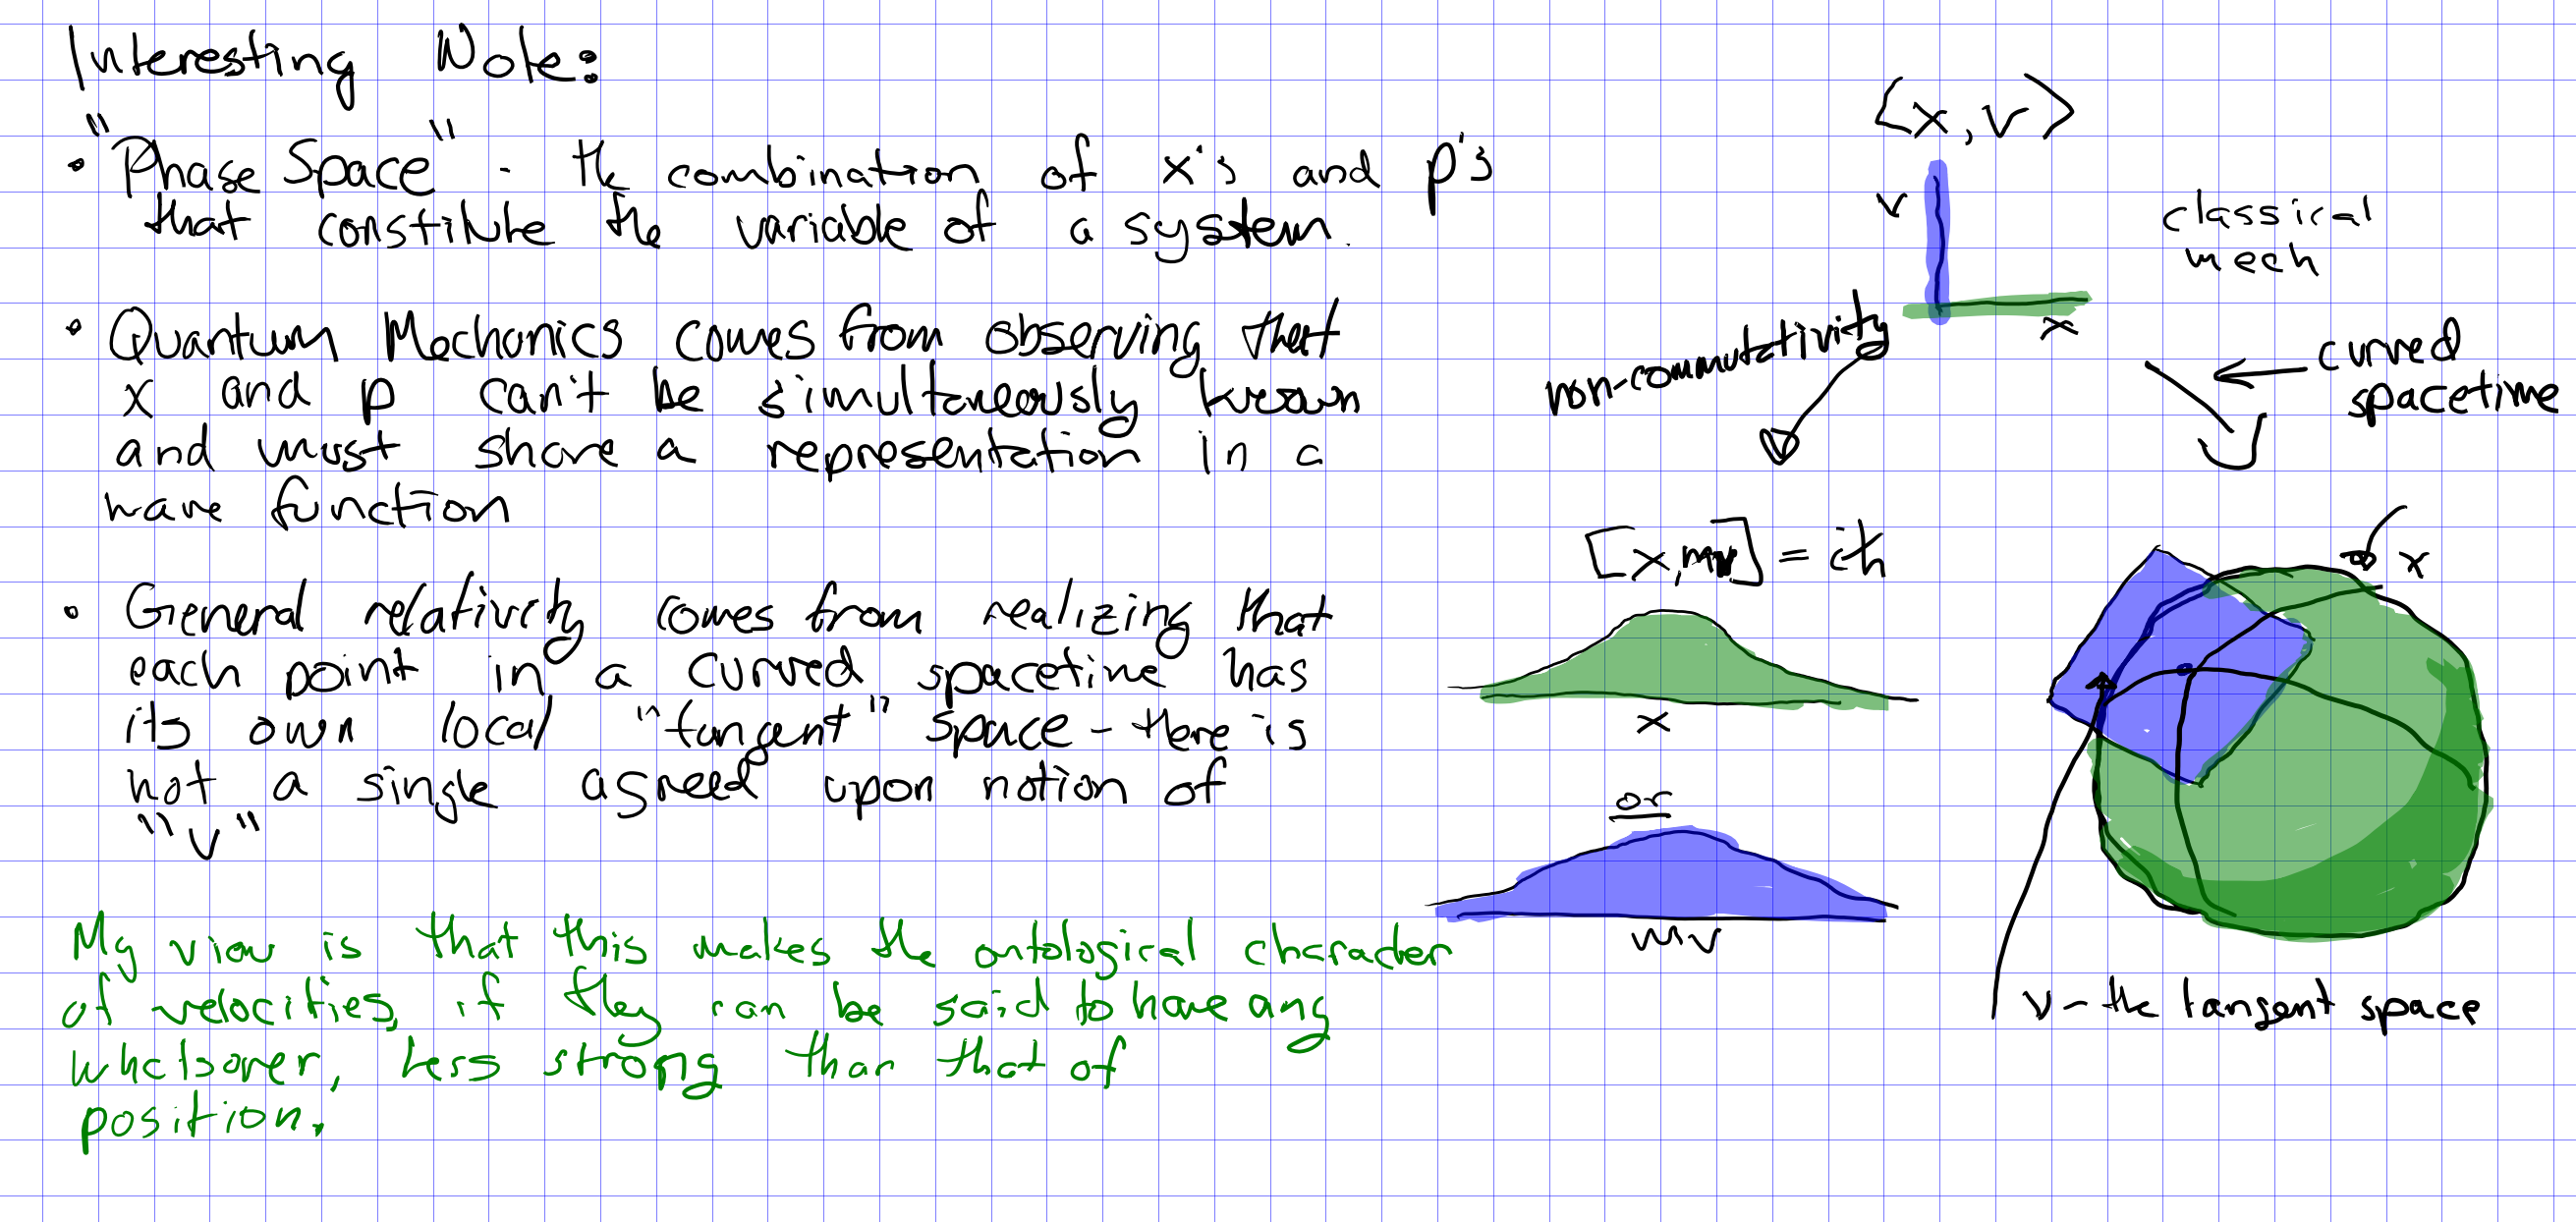 Interesting Note:
• "Phase Space" - the combination of x's and p's
that constitute the variable of a system.
• Quantum Mechanics comes from observing that
x and p can't be simultaneously known
and must share a representation in a
wave function
• General relativity comes from realizing that
each point in a curved spacetime has
its own local "tangent" space - there is
not a single agreed upon notion of
"v"
My view is that this makes the ontological character
of velocities, if they can be said to have any
whatsover, less strong than that of
position.
(x, v)
v
classical
mech
x
non-commutativity
curved
spacetime
[x, mv] = iħ
x
or
mv
x
v - the tangent space